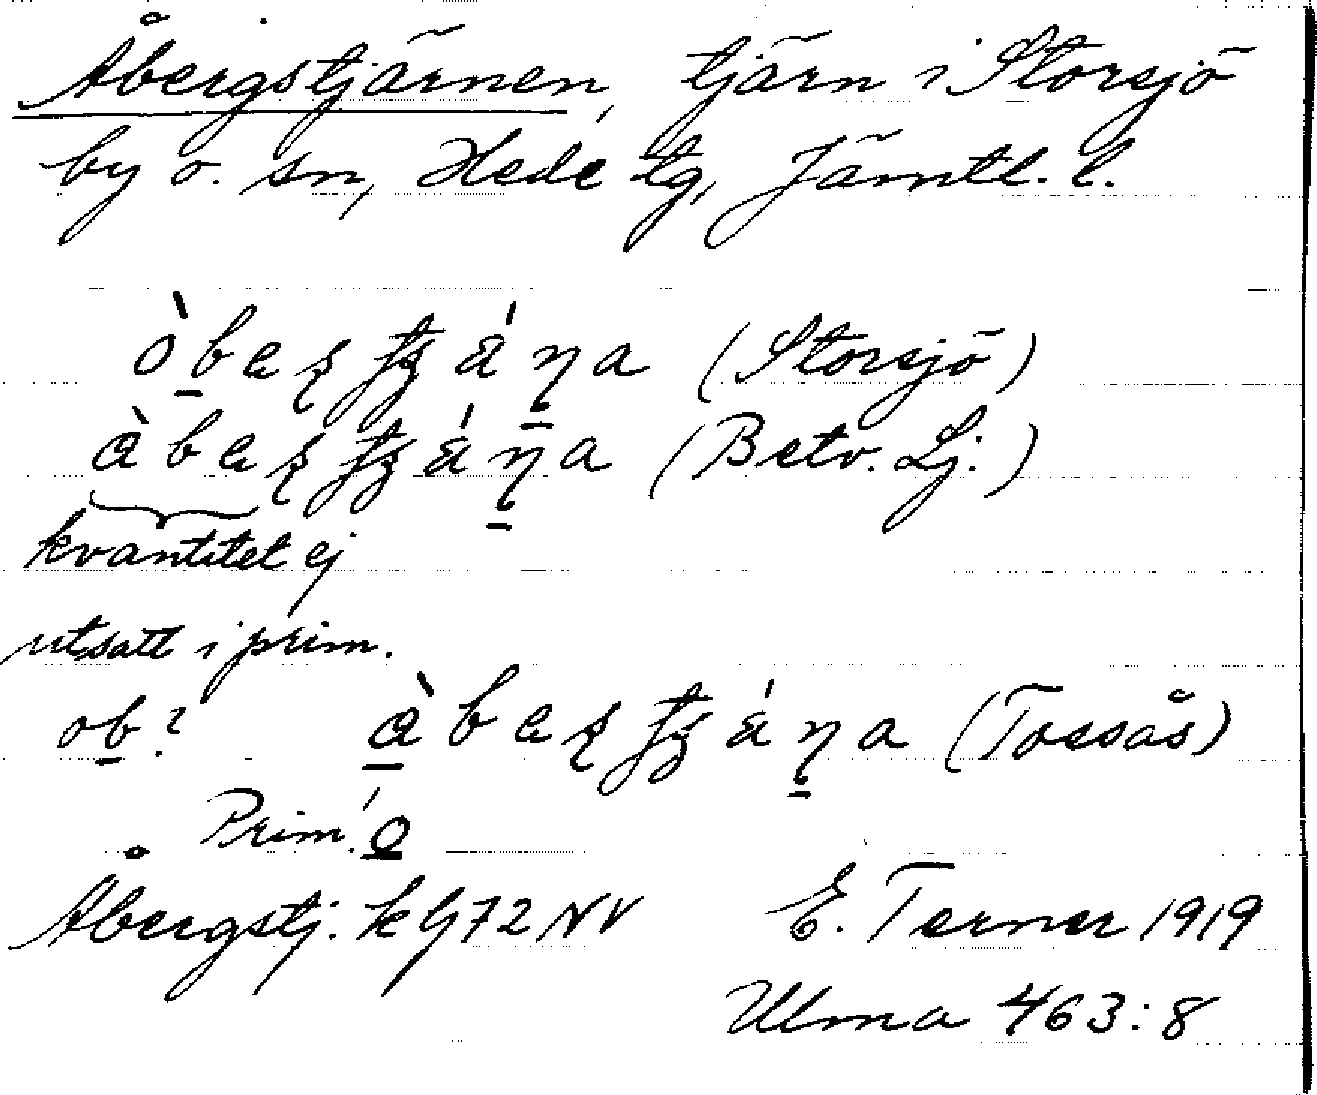 Åbergstjärnen, tjärn i Storsjö
by o. sn, Hede tg, Jämtl. l.
(Storsjö)
(Betv. Lj.)
kvantitet ej
utsatt i prim.
ob? (Tossås)
Prim.
Åbergstj. k G72 NV E. Terner 1919
Ulma 463:8